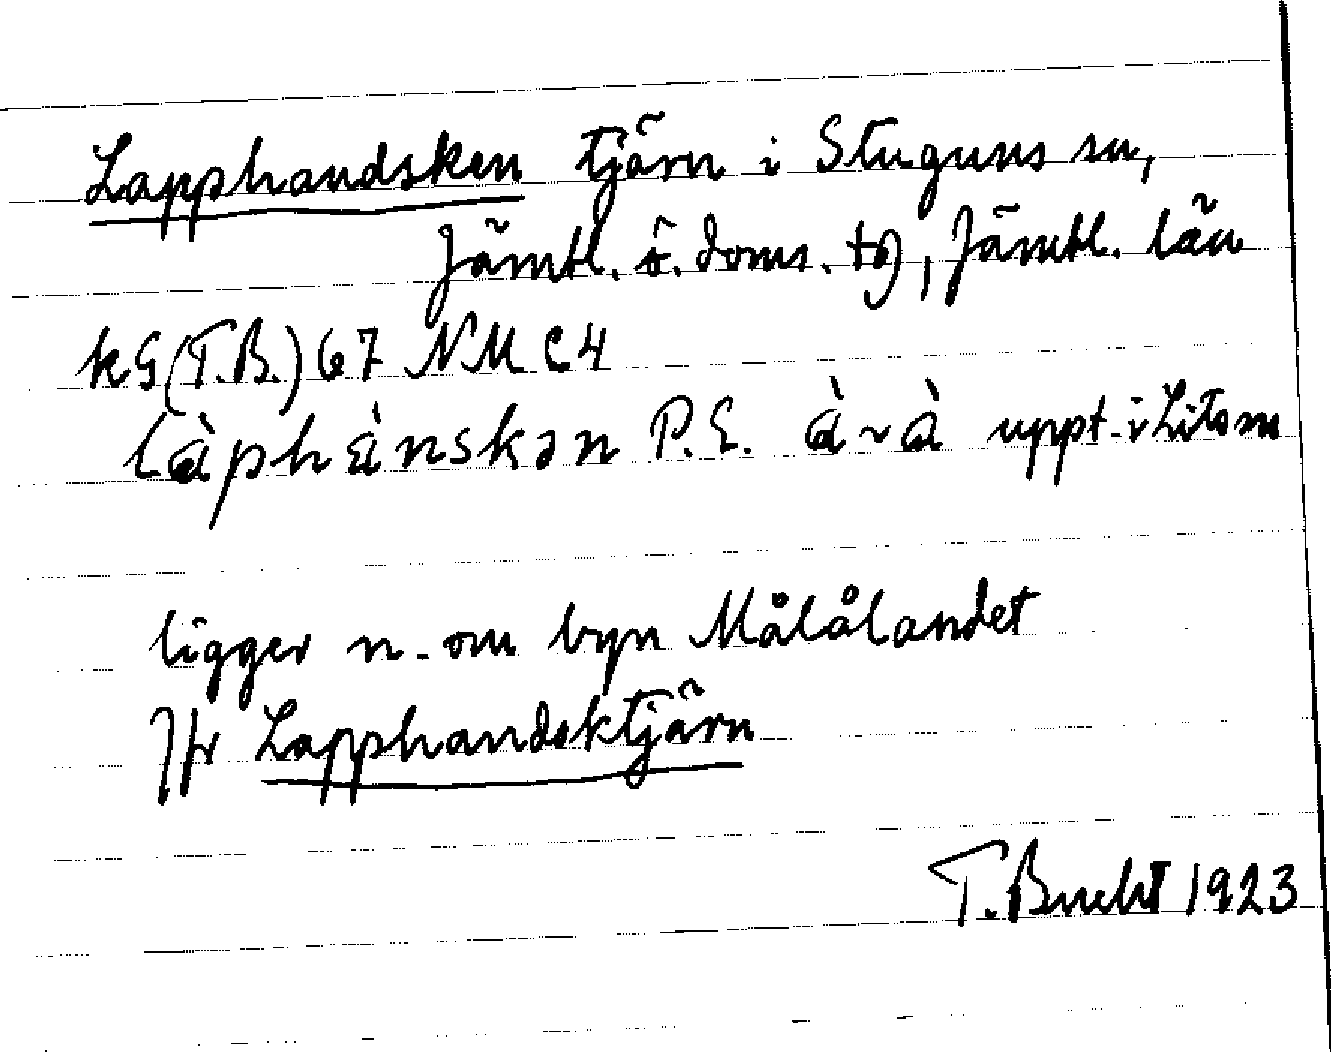 Lapphandsken tjärn i Stuguns sn,
Jämtl. ö. doms. tg, Jämtl. län
kG (T.B.) 67 NM C4
làphànskən P.E. à ~ à uppt. i Lits sn
ligger n. om byn Målålandet
Jfr Lapphandsktjärn
T. Bucht 1923